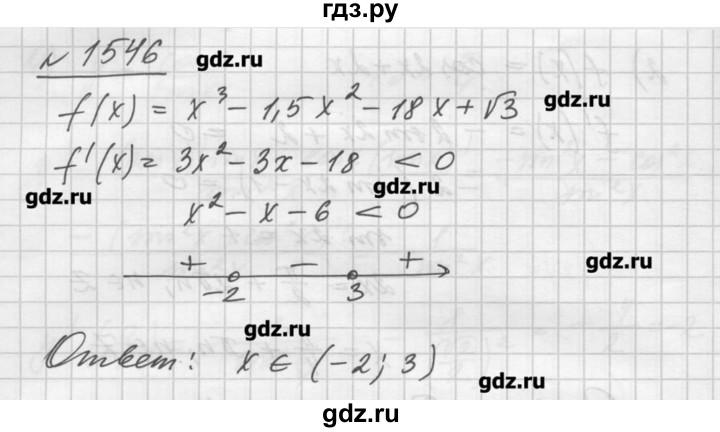 гдз.ру
№ 1546
gdz.ru
f(x) = x³ - 1,5x² - 18x + √3
gdz.ru
f'(x) = 3x² - 3x - 18 < 0
gdz.ru
gdz.ru
x² - x - 6 < 0
+ - +
gdz.ru
-2 3
gdz.ru
Ответ: x ∈ (-2; 3)
gdz.ru
gdz.ru